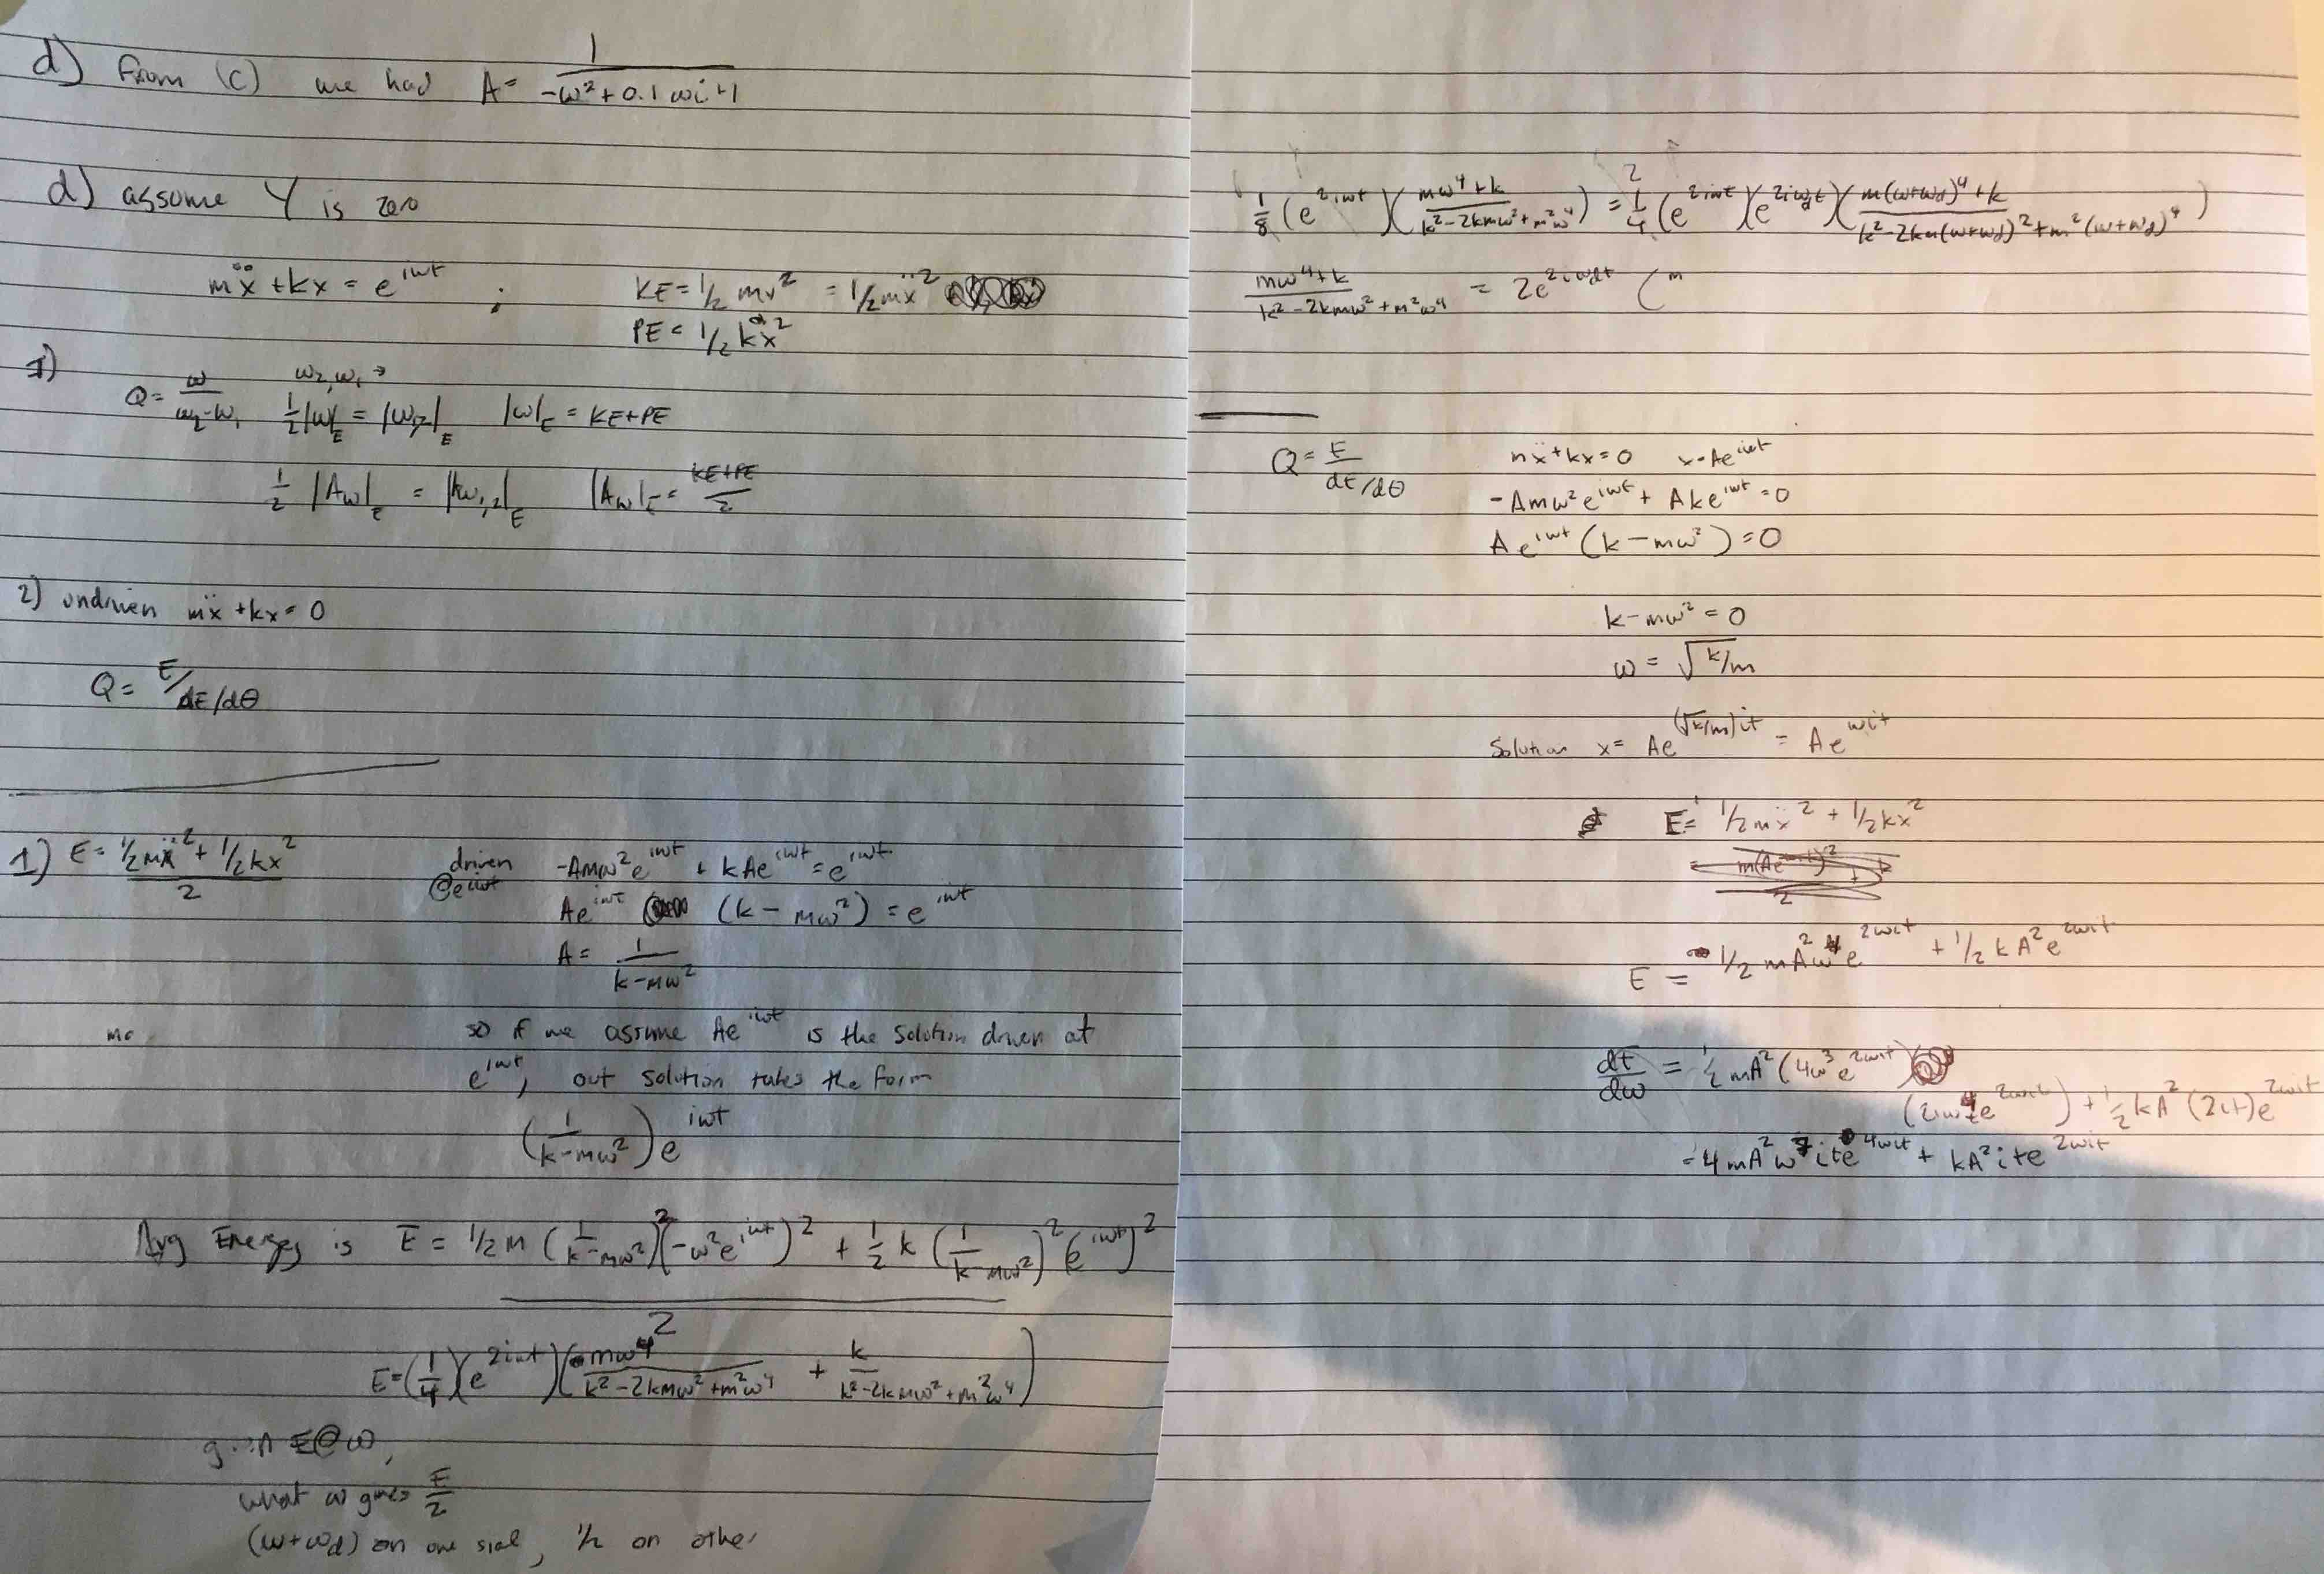 d) From (c) we had A = 1/(-ω² + 0.1 ωi + 1)
d) assume γ is zero
mẍ + kx = e^(iωt) ; KE = 1/2 mv² = 1/2 mẍ²
PE = 1/2 kx²
1)
Q = ω/(ω₂-ω₁) ω₂,ω₁ → 1/2|ω|_E = |ω₁,₂|_E |ω|_E = KE+PE
1/2 |Aω|_E = |Aω₁,₂|_E |Aω|_E = (KE+PE)/2
2) undriven mẍ + kx = 0
Q = E/dE/dθ
1) E = (1/2 mẍ² + 1/2 kx²)/2
driven @e^(iωt) -Amω²e^(iωt) + kAe^(iωt) = e^(iωt)
Ae^(iωt) (k - mω²) = e^(iωt)
A = 1/(k-mω²)
so if we assume Ae^(iωt) is the solution driven at
e^(iωt), out solution takes the form
(1/(k-mω²)) e^(iωt)
Avg Energy is E = (1/2 m (1/(k-mω²))²(-ω²e^(iωt))² + 1/2 k (1/(k-mω²))²(e^(iωt))²)/2
E = (1/4)(e^(2iωt))(mω⁴/(k²-2kmω²+m²ω⁴) + k/(k²-2kmω²+m²ω⁴))
E@ω,
what ω gives E/2
(ω+ω_d) on one side, 1/2 on other
1/8 (e^(2iωt))((mω⁴+k)/(k²-2kmω²+m²ω⁴)) = 1/4 (e^(2iωt))(e^(2iω_d t))((m(ω+ω_d)⁴+k)/(k²-2km(ω+ω_d)²+m²(ω+ω_d)⁴))
(mω⁴+k)/(k²-2kmω²+m²ω⁴) = 2e^(2iω_d t) (m
Q = E/(dE/dθ) mẍ+kx=0 x=Ae^(iωt)
-Amω²e^(iωt) + Ake^(iωt) = 0
Ae^(iωt)(k-mω²) = 0
k-mω² = 0
ω = √(k/m)
Solution x = Ae^((√k/m)it) = Ae^(ωit)
E = 1/2 mẍ² + 1/2 kx²
E = 1/2 mA²ω⁴e^(2ωit) + 1/2 kA²e^(2ωit)
dE/dω = 1/2 mA²(4ω³e^(2ωit))
(2iω⁴te^(2ωit)) + 1/2 kA²(2it)e^(2ωit)
= 4mA²ω⁷ite^(4ωit) + kA²ite^(2ωit)